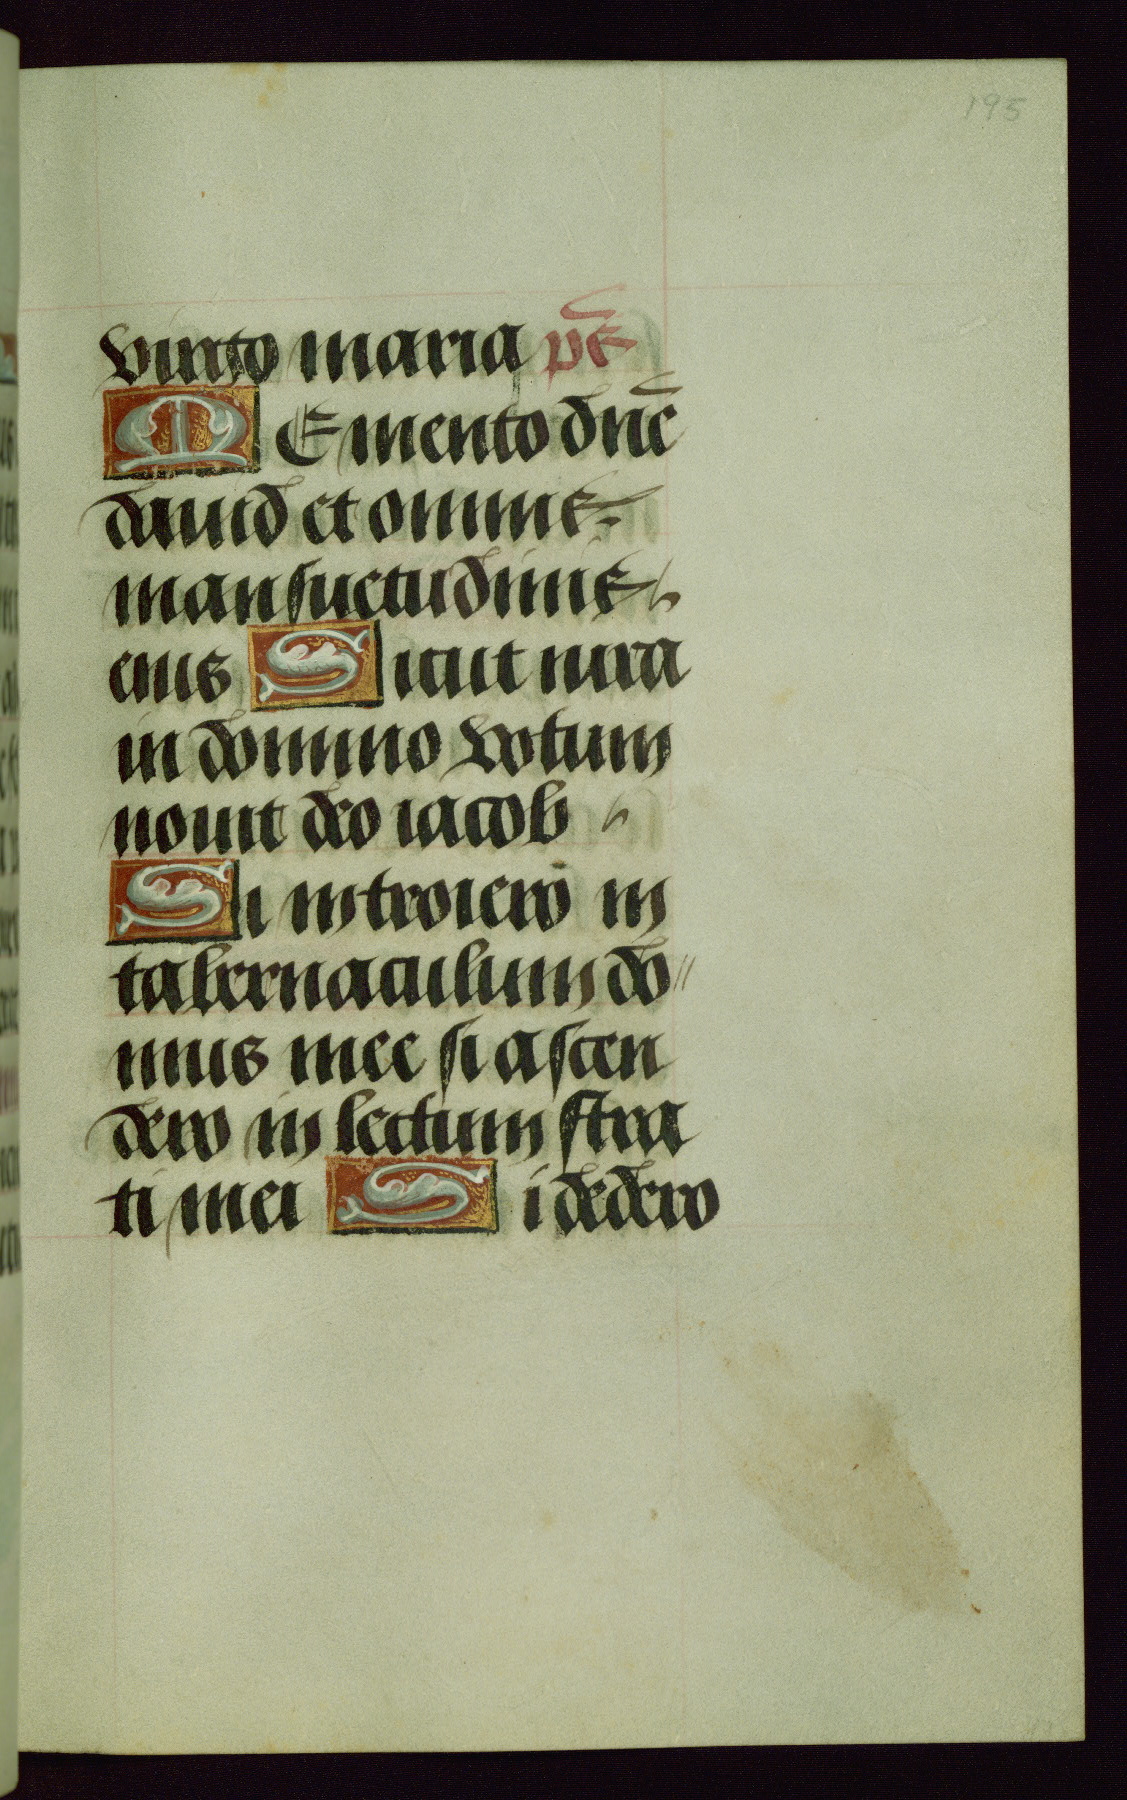 195
virgo maria ps̄
MEmento dn̄e
dauid et omnis
mansuetudinis
eius Sicut iura
in domino votum
nouit deo iacob
Si introiero in
tabernaculum do
mus mee si ascen
dero in lectum stra
ti mei Si dedero